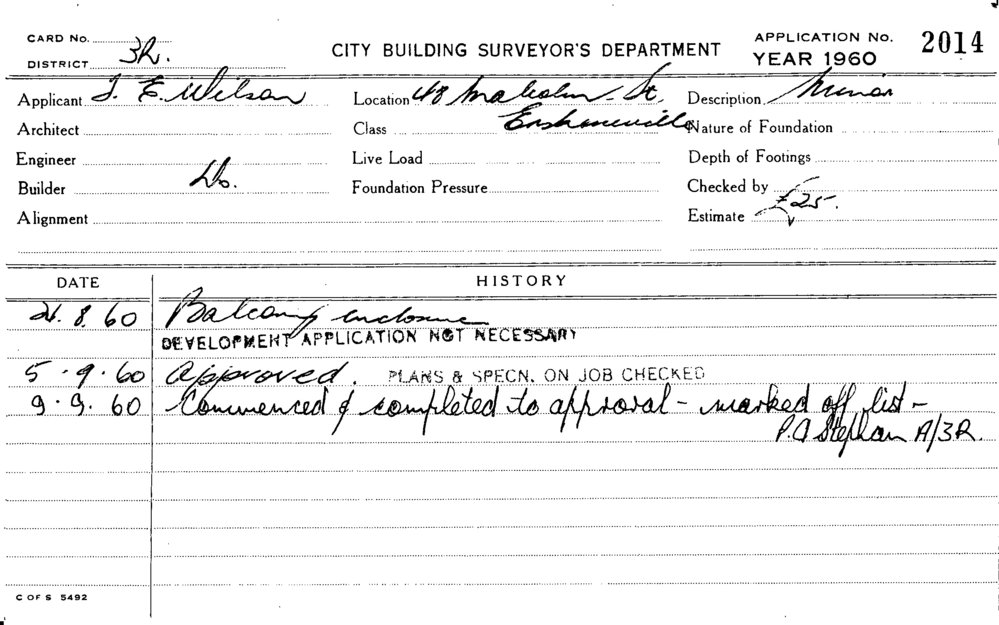 CARD No.
DISTRICT 3R.
CITY BUILDING SURVEYOR'S DEPARTMENT
APPLICATION No. 2014
YEAR 1960
Applicant J. E. Wilson
Location 48 Malcolm St,
Description Minor
Architect
Class Erskineville
Nature of Foundation
Engineer
Live Load
Depth of Footings
Builder Do.
Foundation Pressure
Checked by
Alignment
Estimate £25.
DATE HISTORY
8. 60 Balcony enclosure
DEVELOPMENT APPLICATION NOT NECESSARY
5 . 9 . 60 Approved. PLANS & SPECN. ON JOB CHECKED
9 . 9. 60 Commenced & completed to approval - marked off list -
P. A Stephan A/3R.
C OF S 5492